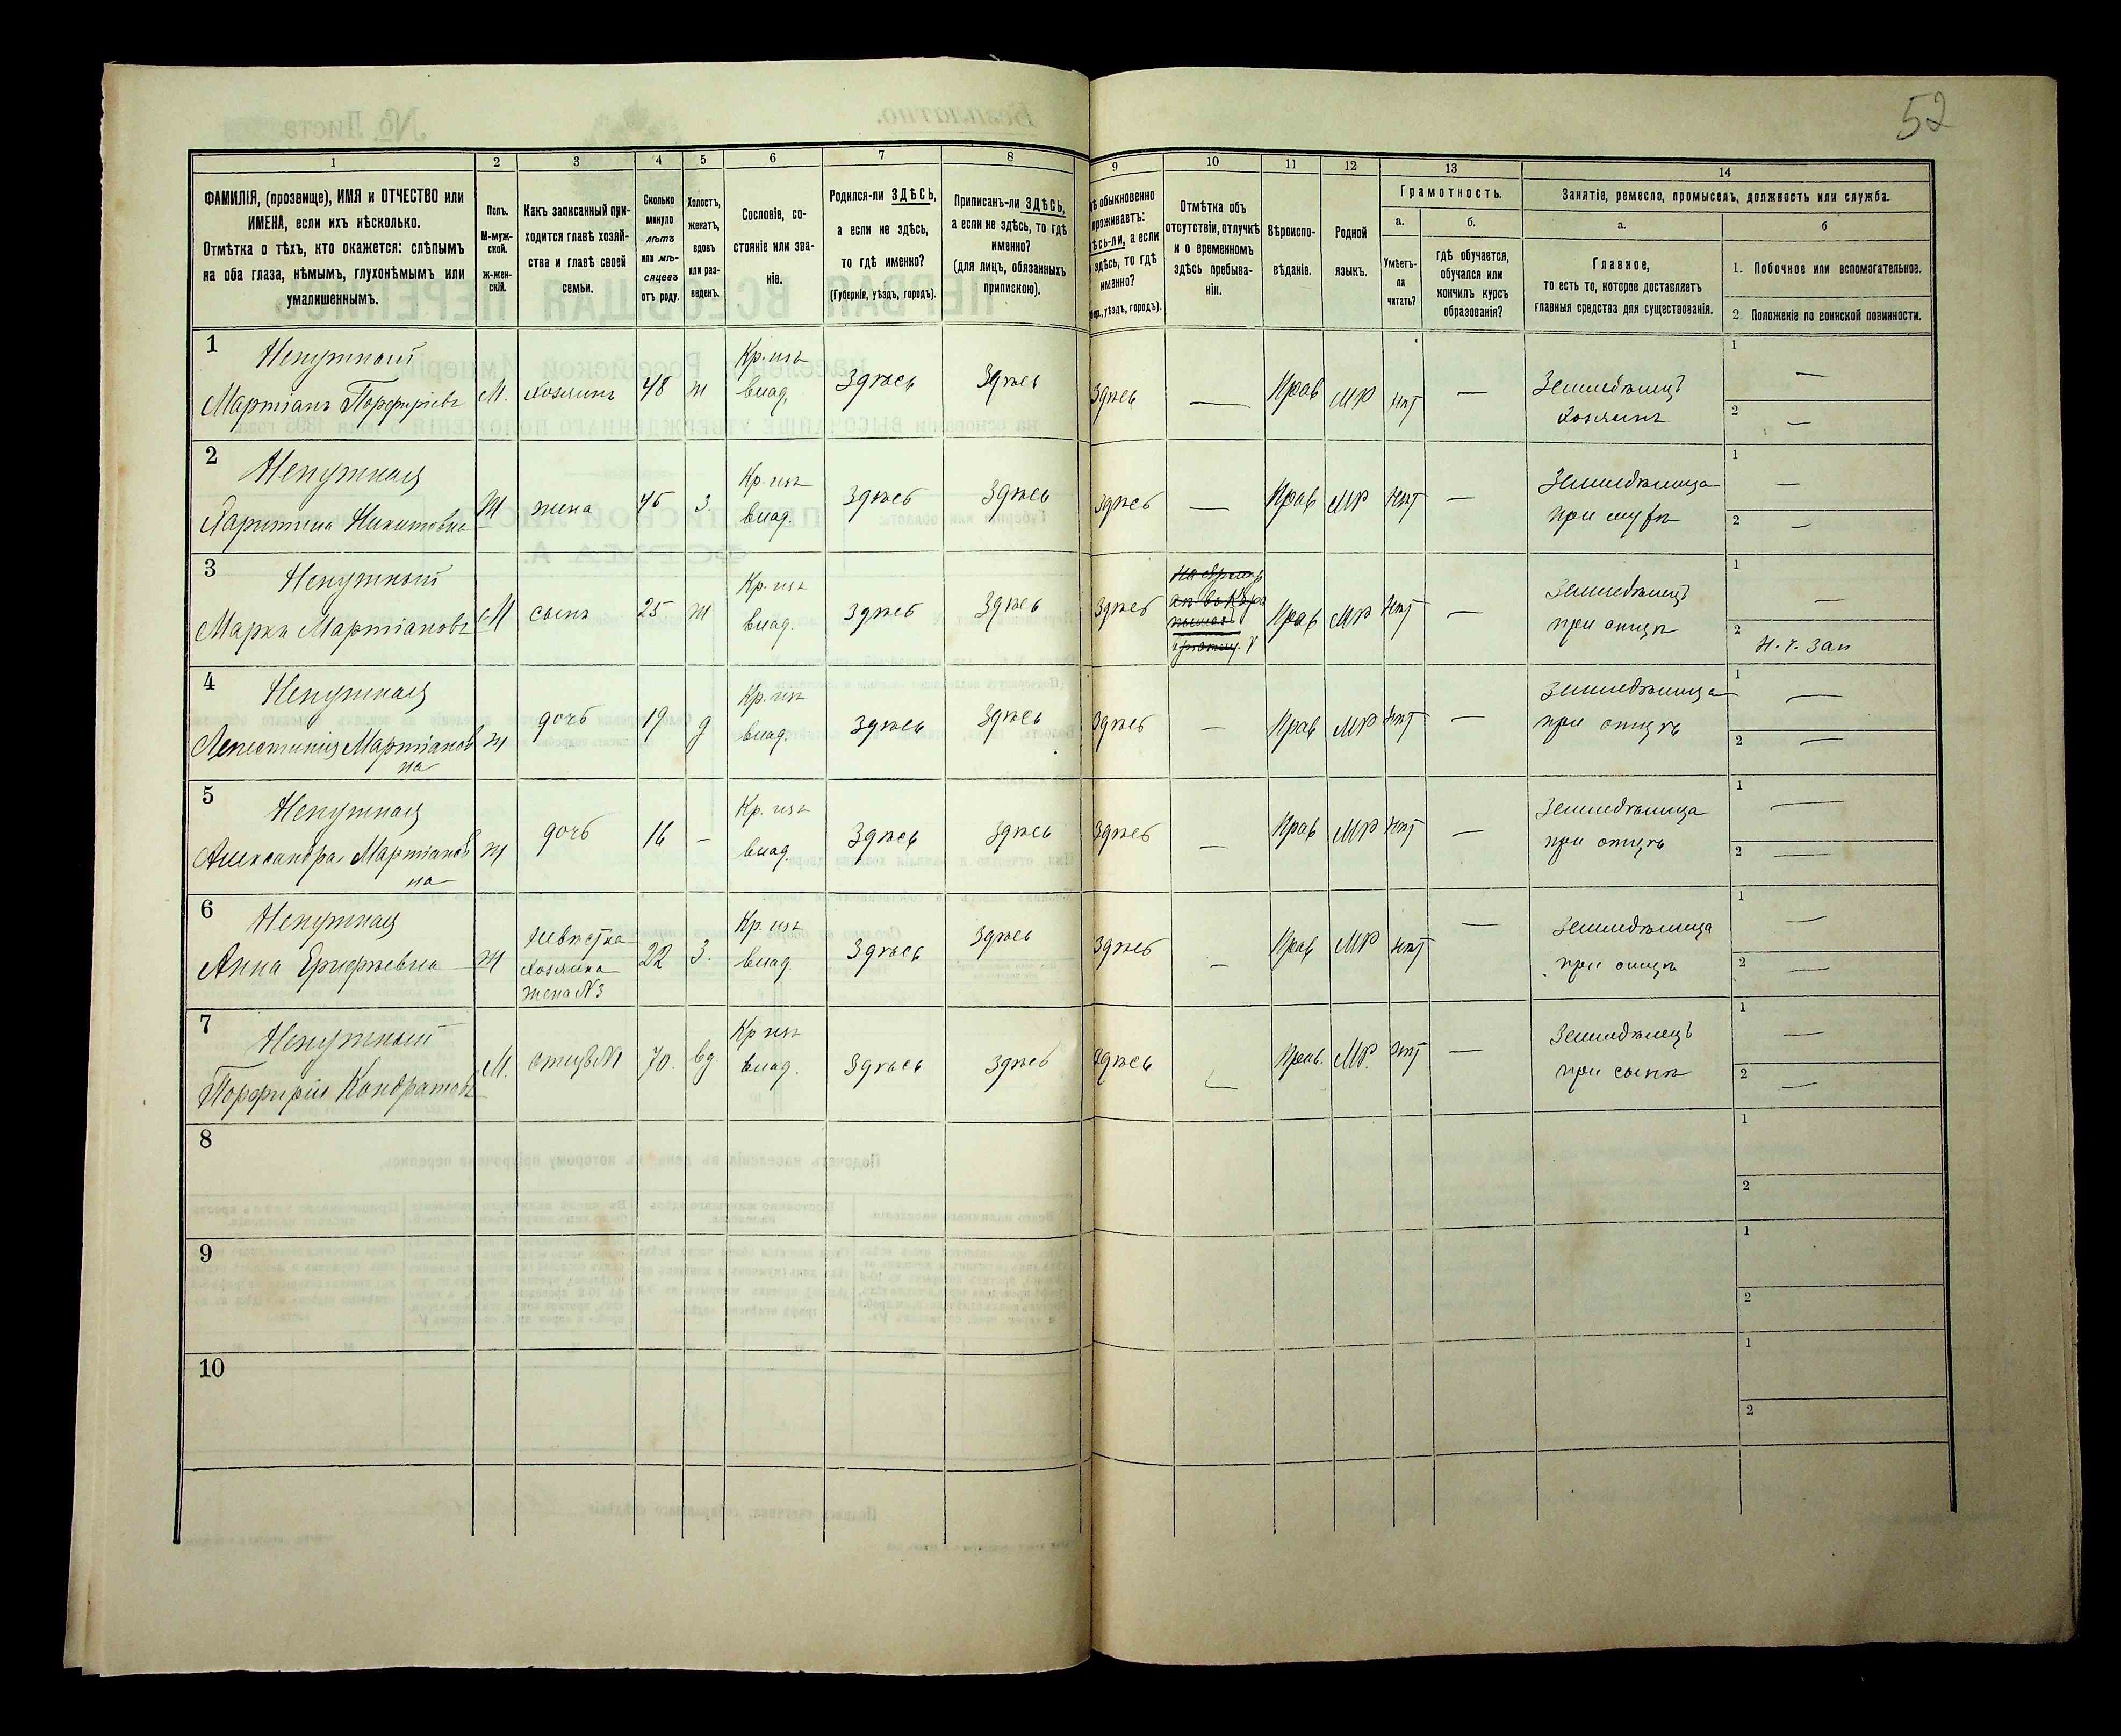 52
1 2 3 4 5 6 7 8 9 10 11 12 13 14
ФАМИЛІЯ, (прозвище), ИМЯ и ОТЧЕСТВО или
ИМЕНА, если ихъ нѣсколько.
Отмѣтка о тѣхъ, кто окажется: слѣпымъ
на оба глаза, нѣмымъ, глухонѣмымъ или
умалишеннымъ.
Полъ.
М-муж-
ской.
ж-жен-
скій.
Какъ записанный при-
ходится главѣ хозяй-
ства и главѣ своей
семьи.
Сколько
минуло
лѣтъ
или мѣ-
сяцевъ
отъ роду.
Холостъ,
женатъ,
вдовъ
или раз-
веденъ.
Сословіе, со-
стояніе или зва-
ніе.
Родился-ли ЗДѢСЬ,
а если не здѣсь,
то гдѣ именно?
(Губернія, уѣздъ, городъ).
Приписанъ-ли ЗДѢСЬ,
а если не здѣсь, то гдѣ
именно?
(для лицъ, обязанныхъ
припискою).
обыкновенно
проживаетъ:
а если
здѣсь, то гдѣ
именно?
уѣздъ, городъ).
Отмѣтка объ
отсутствіи, отлучкѣ
и о временномъ
здѣсь пребыва-
ніи.
Вѣроиспо-
вѣданіе.
Родной
языкъ.
Грамотность.
а.
Умѣетъ-
ли
читать?
б.
гдѣ обучается,
обучался или
кончилъ курсъ
образованія?
Занятіе, ремесло, промыселъ, должность или служба.
а.
Главное,
то есть то, которое доставляетъ
главныя средства для существованія.
б
1. Побочное или вспомогательное.
2. Положеніе по воинской повинности.
1 Ненужный
Мартіанъ Порфиріевъ М. хозяинъ 48 ж Кр. изъ влад. Здѣсь Здѣсь Здѣсь — Прав МР нѣт — Земледѣлецъ хозяинъ 1 — 2 —
2 Ненужная
Харитина Никитовна Ж жена 45 З. Кр. изъ влад. Здѣсь Здѣсь Здѣсь — Прав МР нѣт — Земледѣлица при мужѣ 1 — 2 —
3 Ненужный
Марко Мартіановъ М сынъ 25 ж Кр. изъ влад. Здѣсь Здѣсь Здѣсь Прав МР нѣт — Земледѣлецъ при отцѣ 1 — 2 Н. ч. зап
4 Ненужная
Мартіанов
на ж дочь 19 д Кр. изъ влад. Здѣсь Здѣсь Здѣсь — Прав МР нѣт — Земледѣлица при отцѣ 1 — 2 —
5 Ненужная
Александра Мартіанов
на ж дочь 16 — Кр. изъ влад. Здѣсь Здѣсь Здѣсь — Прав МР нѣт — Земледѣлица при отцѣ 1 — 2 —
6 Ненужная
Анна ж невѣстка хозяина жена №3 22 З. Кр. изъ влад Здѣсь Здѣсь Здѣсь — Прав МР нѣт — Земледѣлица при отцѣ 1 — 2 —
7 Ненужный
Порфирій Кондратовъ М. отецъ №1 70. вд. Кр изъ влад. Здѣсь Здѣсь Здѣсь Прав. МР. нѣт — Земледѣлецъ при сынѣ 1 — 2 —
8 1 2
9 1 2
10 1 2